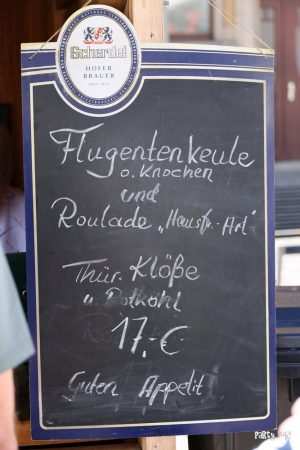 Scherdel
HOFER
BRAUER
Flugentenkeule
o. Knochen
und
Roulade „Hausfr.-Art"
Thür. Klöße
u. Rotkohl
17,-€
Guten Appetit